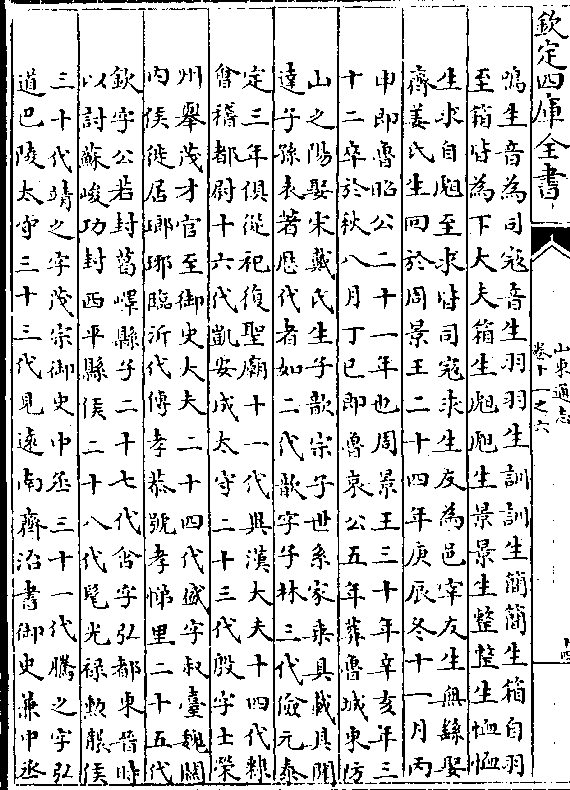 欽定四庫全書
山東通志
卷十一之六
十四
鳴生音為司寇音生羽羽生訓訓生簡簡生箱自羽
至箱皆為下大夫箱生彪彪生景景生整整生恤恤
生求自彪至求皆司寇求生友為邑宰友生無繇娶
齊姜氏生回於周景王二十四年庚辰冬十一月丙
申即魯昭公二十一年也周景王三十年辛亥年三
十二卒於秋八月丁巳即魯哀公五年葬魯城東防
山之陽娶宋戴氏生子歆宗子世系家乗具載其聞
達子孫表著歷代者如二代歆字子林三代儉元泰
定三年俱從祀復聖廟十一代興漢大夫十四代肄
會稽都尉十六代凱安成太守二十三代殷字士榮
州舉茂才官至御史大夫二十四代盛字叔臺魏關
内侯徙居瑯琊臨沂代傳孝恭號孝悌里二十五代
欽字公若封葛嶧縣子二十七代含字弘都東晉時
以討蘇峻功封西平縣侯二十八代髦光祿勲襲侯
三十代靖之字茂宗御史中丞三十一代騰之字弘
道巴陵太守三十三代見遠南齊治書御史兼中丞